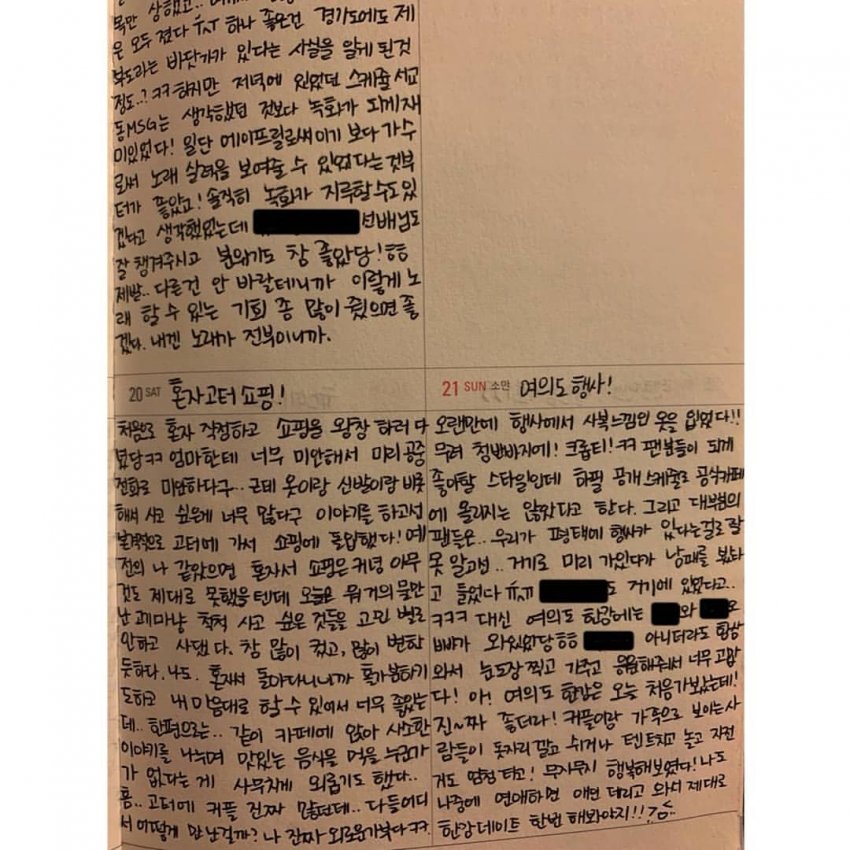 은 모두 졌다 ㅠㅅㅜ 하나 좋은건 경기도에도 제
부도라는 바닷가가 있다는 사실을 알게 된것
정도..? ㅋㅋ 하지만 저녁에 있었던 스케줄 서교
동MSG는 생각했던 것보다 녹화가 되게 재
미있었다! 일단 에이프릴로써 이기 보다 가수
로써 노래 실력을 보여줄 수 있었다는 것부
터가 좋았고! 솔직히 녹화가 지루할 수도 있
겠다고 생각했었는데 선배님도
잘 챙겨주시고 분위기도 참 좋았당! ㅎㅎ
제발.. 다른건 안 바랄테니까 이렇게 노
래 할 수 있는 기회 좀 많이 줬으면 좋
겠다. 내겐 노래가 전부이니까.
20 SAT 혼자고터쇼핑!
처음으로 혼자 작정하고 쇼핑을 왕창 하러 다
녔당ㅋㅋ 엄마한테 너무 미안해서 미리 공중
전화로 미안하다구.. 근데 옷이랑 신발이랑 비롯
해서 사고 싶은게 너무 많다구 이야기를 하고선
본격적으로 고터에 가서 쇼핑에 돌입했다! 예
전의 나 같았으면 혼자서 쇼핑은 커녕 아무
것도 제대로 못했을텐데 오늘은 뭐 거의 물만
난 고기마냥 척척 사고 싶은 것들을 고민 별로
안하고 사댔다. 참 많이 컸고, 많이 변한
듯하다. 나도. 혼자서 돌아다니니까 홀가분하기
도하고 내 마음대로 할 수 있어서 너무 좋았는
데.. 한편으로는.. 같이 카페에 앉아 사소한
이야기를 나누며 맛있는 음식을 먹을 누군가
가 없다는 게 사무치게 외롭기도 했다..
흠.. 고터에 커플 진짜 많던데.. 다들어디
서 어떻게 만난걸까? 나 진짜 외로운가보다ㅋㅋ
21 SUN 소만 여의도행사!
오랜만에 행사에서 사복느낌의 옷을 입었다!!
무려 청반바지에! 크롭티! ㅋㅋ 팬분들이 되게
좋아할 스타일인데 하필 공개스케줄로 공식카페
에 올리지는 않았다고 한다. 그리고 대부분의
팬들은.. 우리가 평택에 행사가 있다는걸로 잘
못 알고선.. 거기로 미리 가있다가 낭패를 봤다
고 들었다 ㅠㅅㅠ 도 거기에 있었다고..
ㅋㅋㅋ 대신 여의도 한강에는 와 오
빠가 와있었당ㅎㅎ 아니더라도 항상
와서 눈도장 찍고 가주고 응원해줘서 너무 고맙
다! 아! 여의도 한강은 오늘 처음가봤는데!
진~짜 좋더라! 커플이랑 가족으로 보이는사
람들이 돗자리 깔고 쉬거나 텐트치고 놀고 자전
거도 엄청 타고! 무지무지 행복해보였다! 나도
나중에 연애하면 애인 데리고 와서 제대로
한강데이트 한번 해봐야지!!